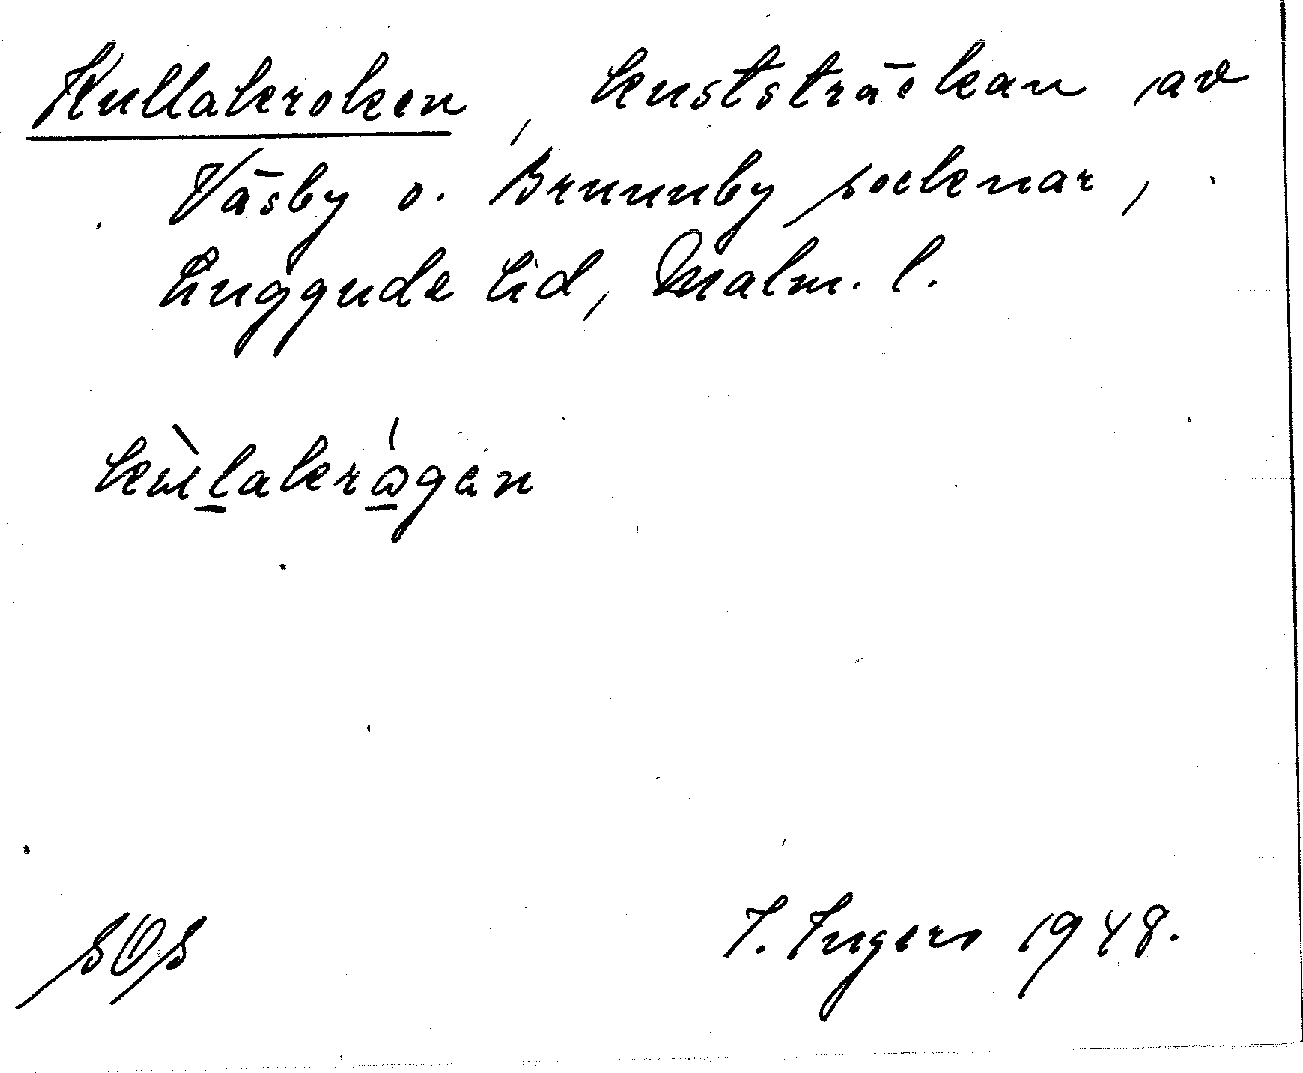 Kullakroken, kuststräckan av
Väsby o. Brunnby socknar,
Luggude hd, Malm. l.
kùlakrógan
SOS
I. Ingers 1948.